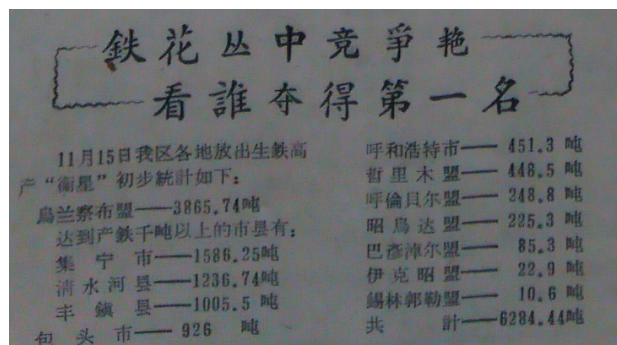 鉄花丛中竞爭艳
看誰夺得第一名
11月15日我区各地放出生鉄高
产“衛星”初步統計如下:
烏兰察布盟——3865.74吨
达到产鉄千吨以上的市县有:
集宁市——1586.25吨
清水河县——1236.74吨
丰鎭县——1005.5吨
包头市——926吨
呼和浩特市——451.3吨
哲里木盟——448.5吨
呼倫貝尔盟——248.8吨
昭烏达盟——225.3吨
巴彥淖尔盟——85.3吨
伊克昭盟——22.9吨
錫林郭勒盟——10.6吨
共計——6284.44吨